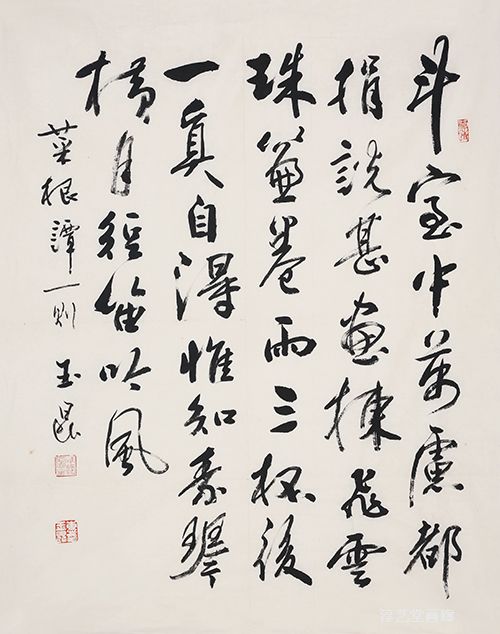 斗室中萬慮都
捐說甚畫棟飛雲
珠簾卷雨三杯後
一真自得惟知素琴
橫月短笛吟風
菜根譚一則 玉
艺堂画廊